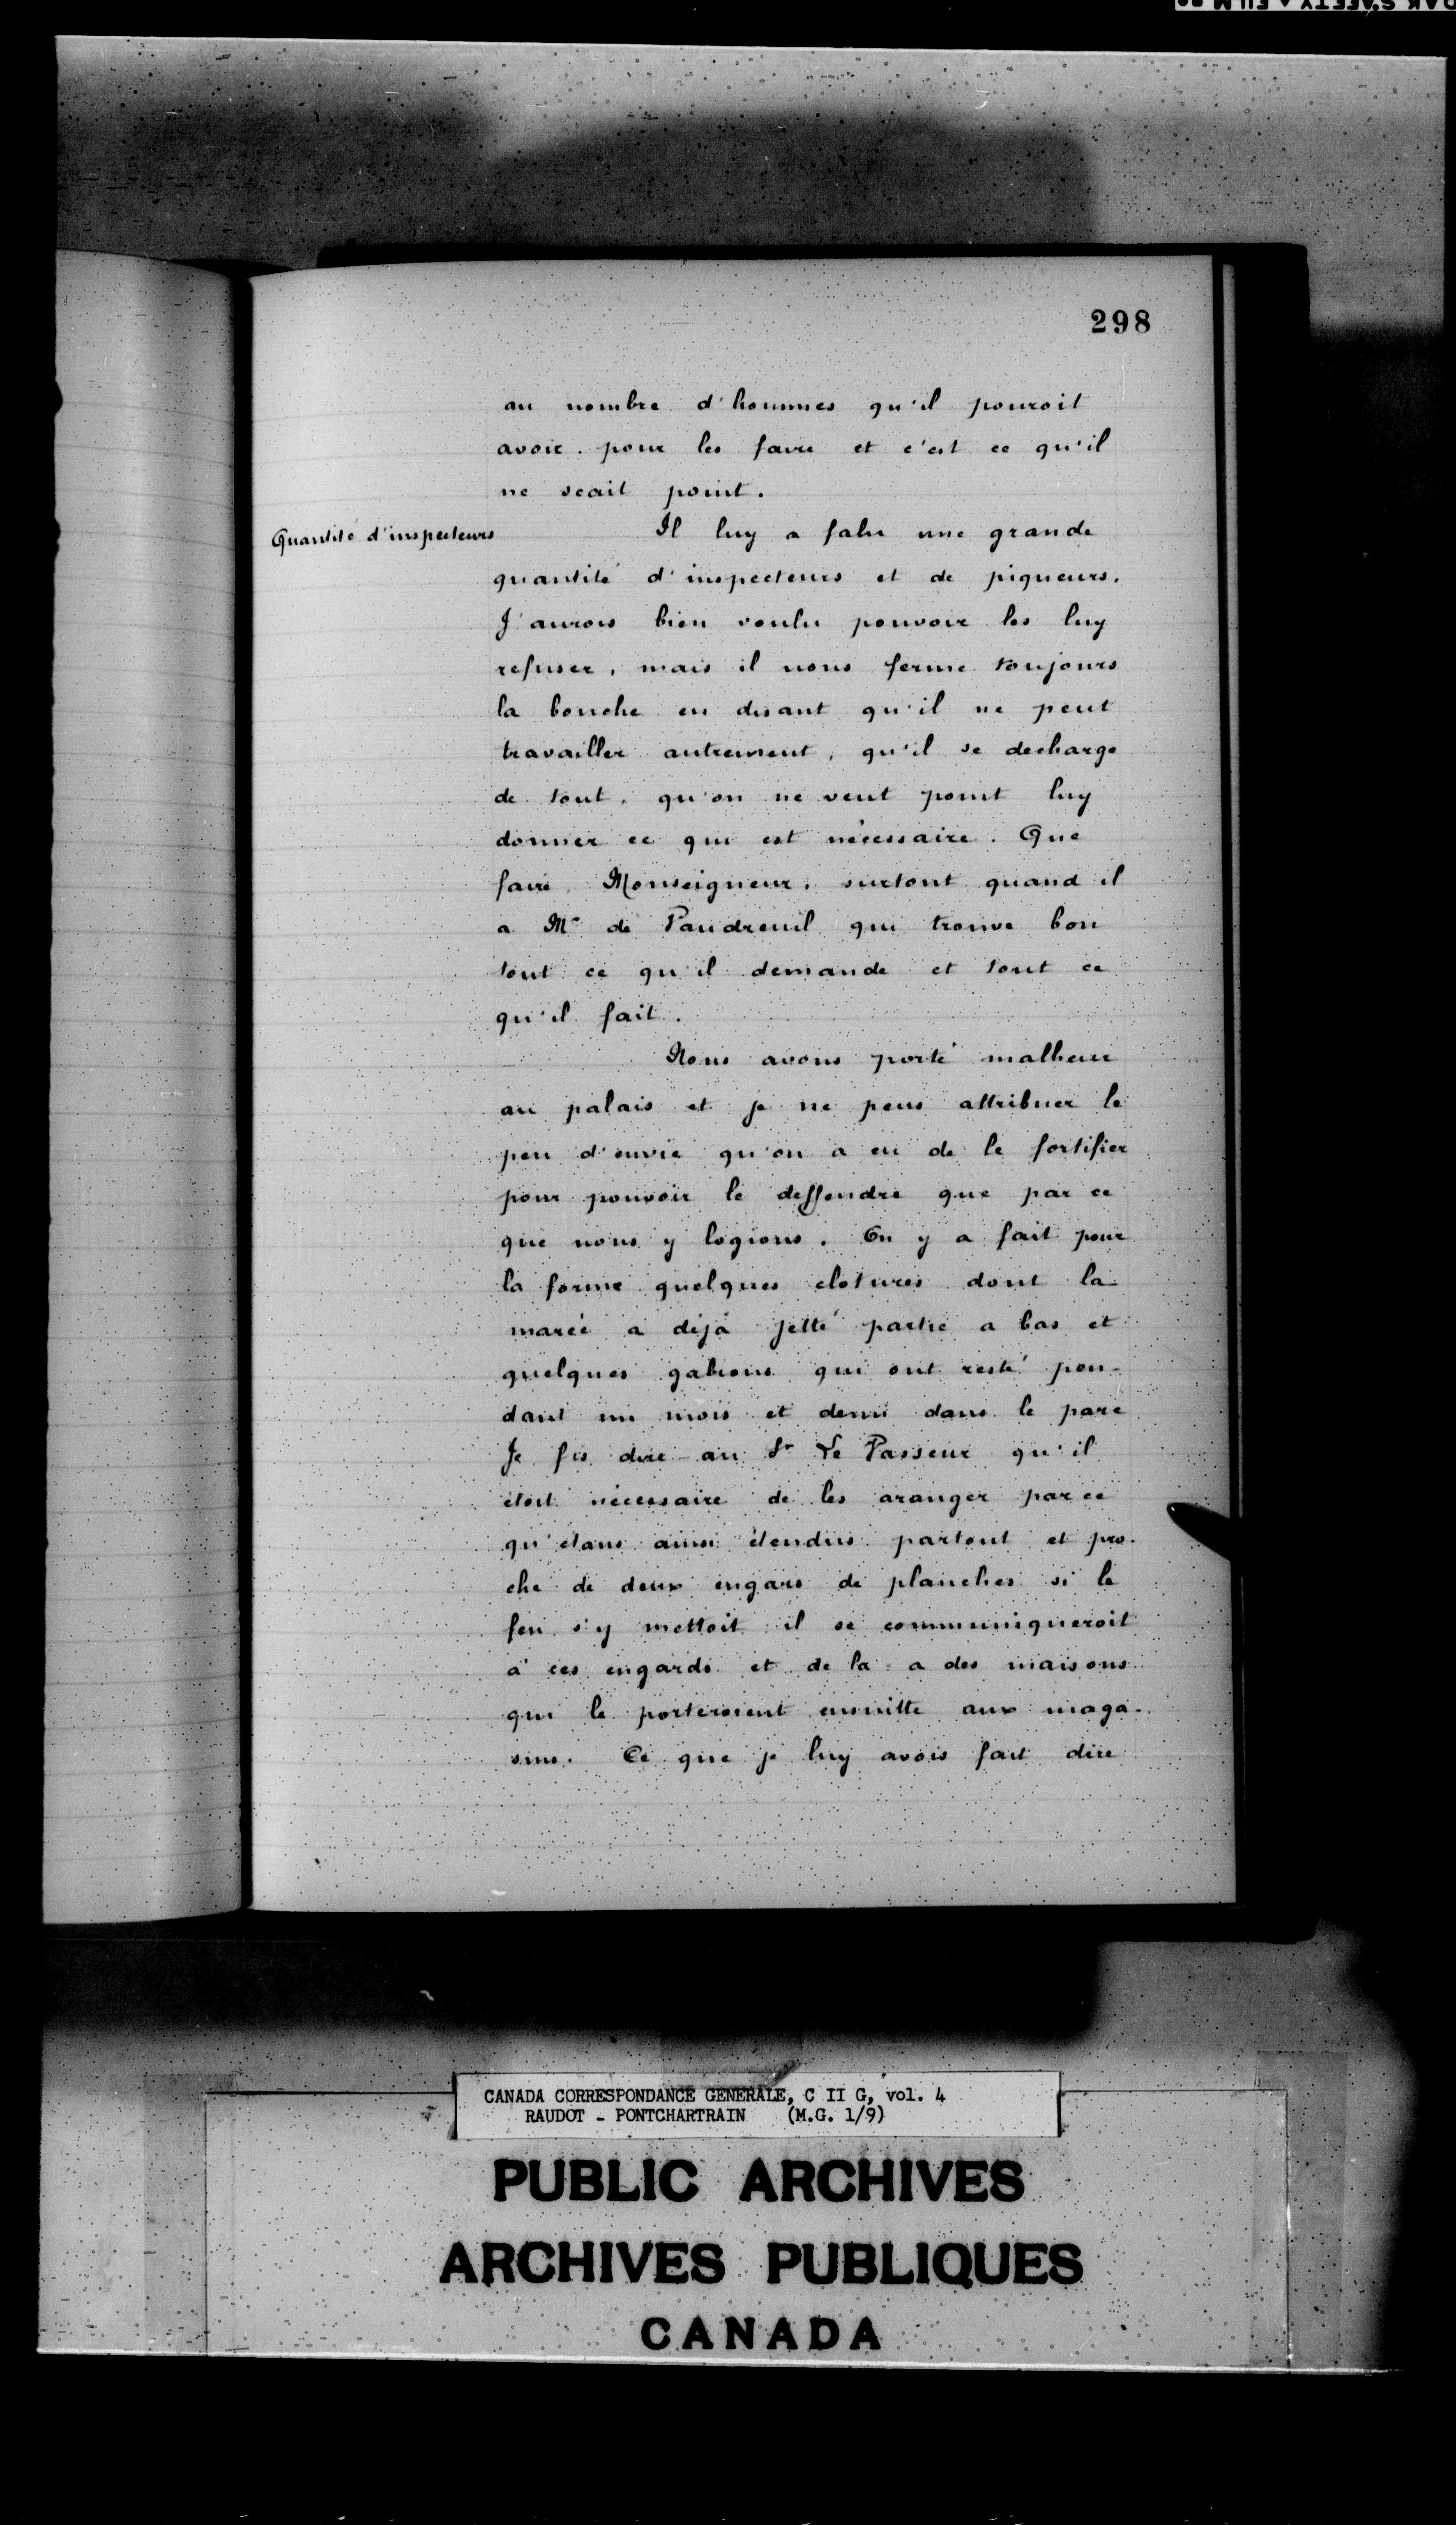 298
au nombre d'hommes qu'il pouroit
avoir. pour les faire et c'est ce qu'il
ne scait point.
Quantité d'inspecteurs
Il luy a falu une grande
quantité d'inspecteurs et de piqueurs.
J'aurois bien voulu pouvoir les luy
refuser, mais il nous ferme toujours
la bouche en disant qu'il ne peut
travailler autrement, qu'il se decharge
de tout, qu'on ne veut point luy
donner ce qui est nécessaire. Que
faire, Monseigneur, surtout quand il
a Mr de Vaudreuil qui trouve bon
tout ce qu'il demande et tout ce
qu'il fait.
Nous avons porté malheur
au palais et je ne peus attribuer le
peu d'envie qu'on a eu de le fortifier
pour pouvoir le deffendre que par ce
que nous y logions. On y a fait pour
la forme quelques clotures dont la
marée a déjà jetté partie a bas et
quelques gabions qui ont resté pen-
dant un mois et demi dans le parc
Je fis dire au Sr Le Vasseur qu'il
étoit nécessaire de les aranger par ce
qu'étans ainsi étendus partout et pro-
che de deux engars de planches si le
feu s'y mettoit il se communiqueroit
à ces engards et de la a des maisons
qui le porteroient ensuitte aux maga-
sins. Ce que je luy avois fait dire
CANADA CORRESPONDANCE GENERALE, C II G, vol. 4
RAUDOT - PONTCHARTRAIN (M.G. 1/9)
PUBLIC ARCHIVES
ARCHIVES PUBLIQUES
CANADA